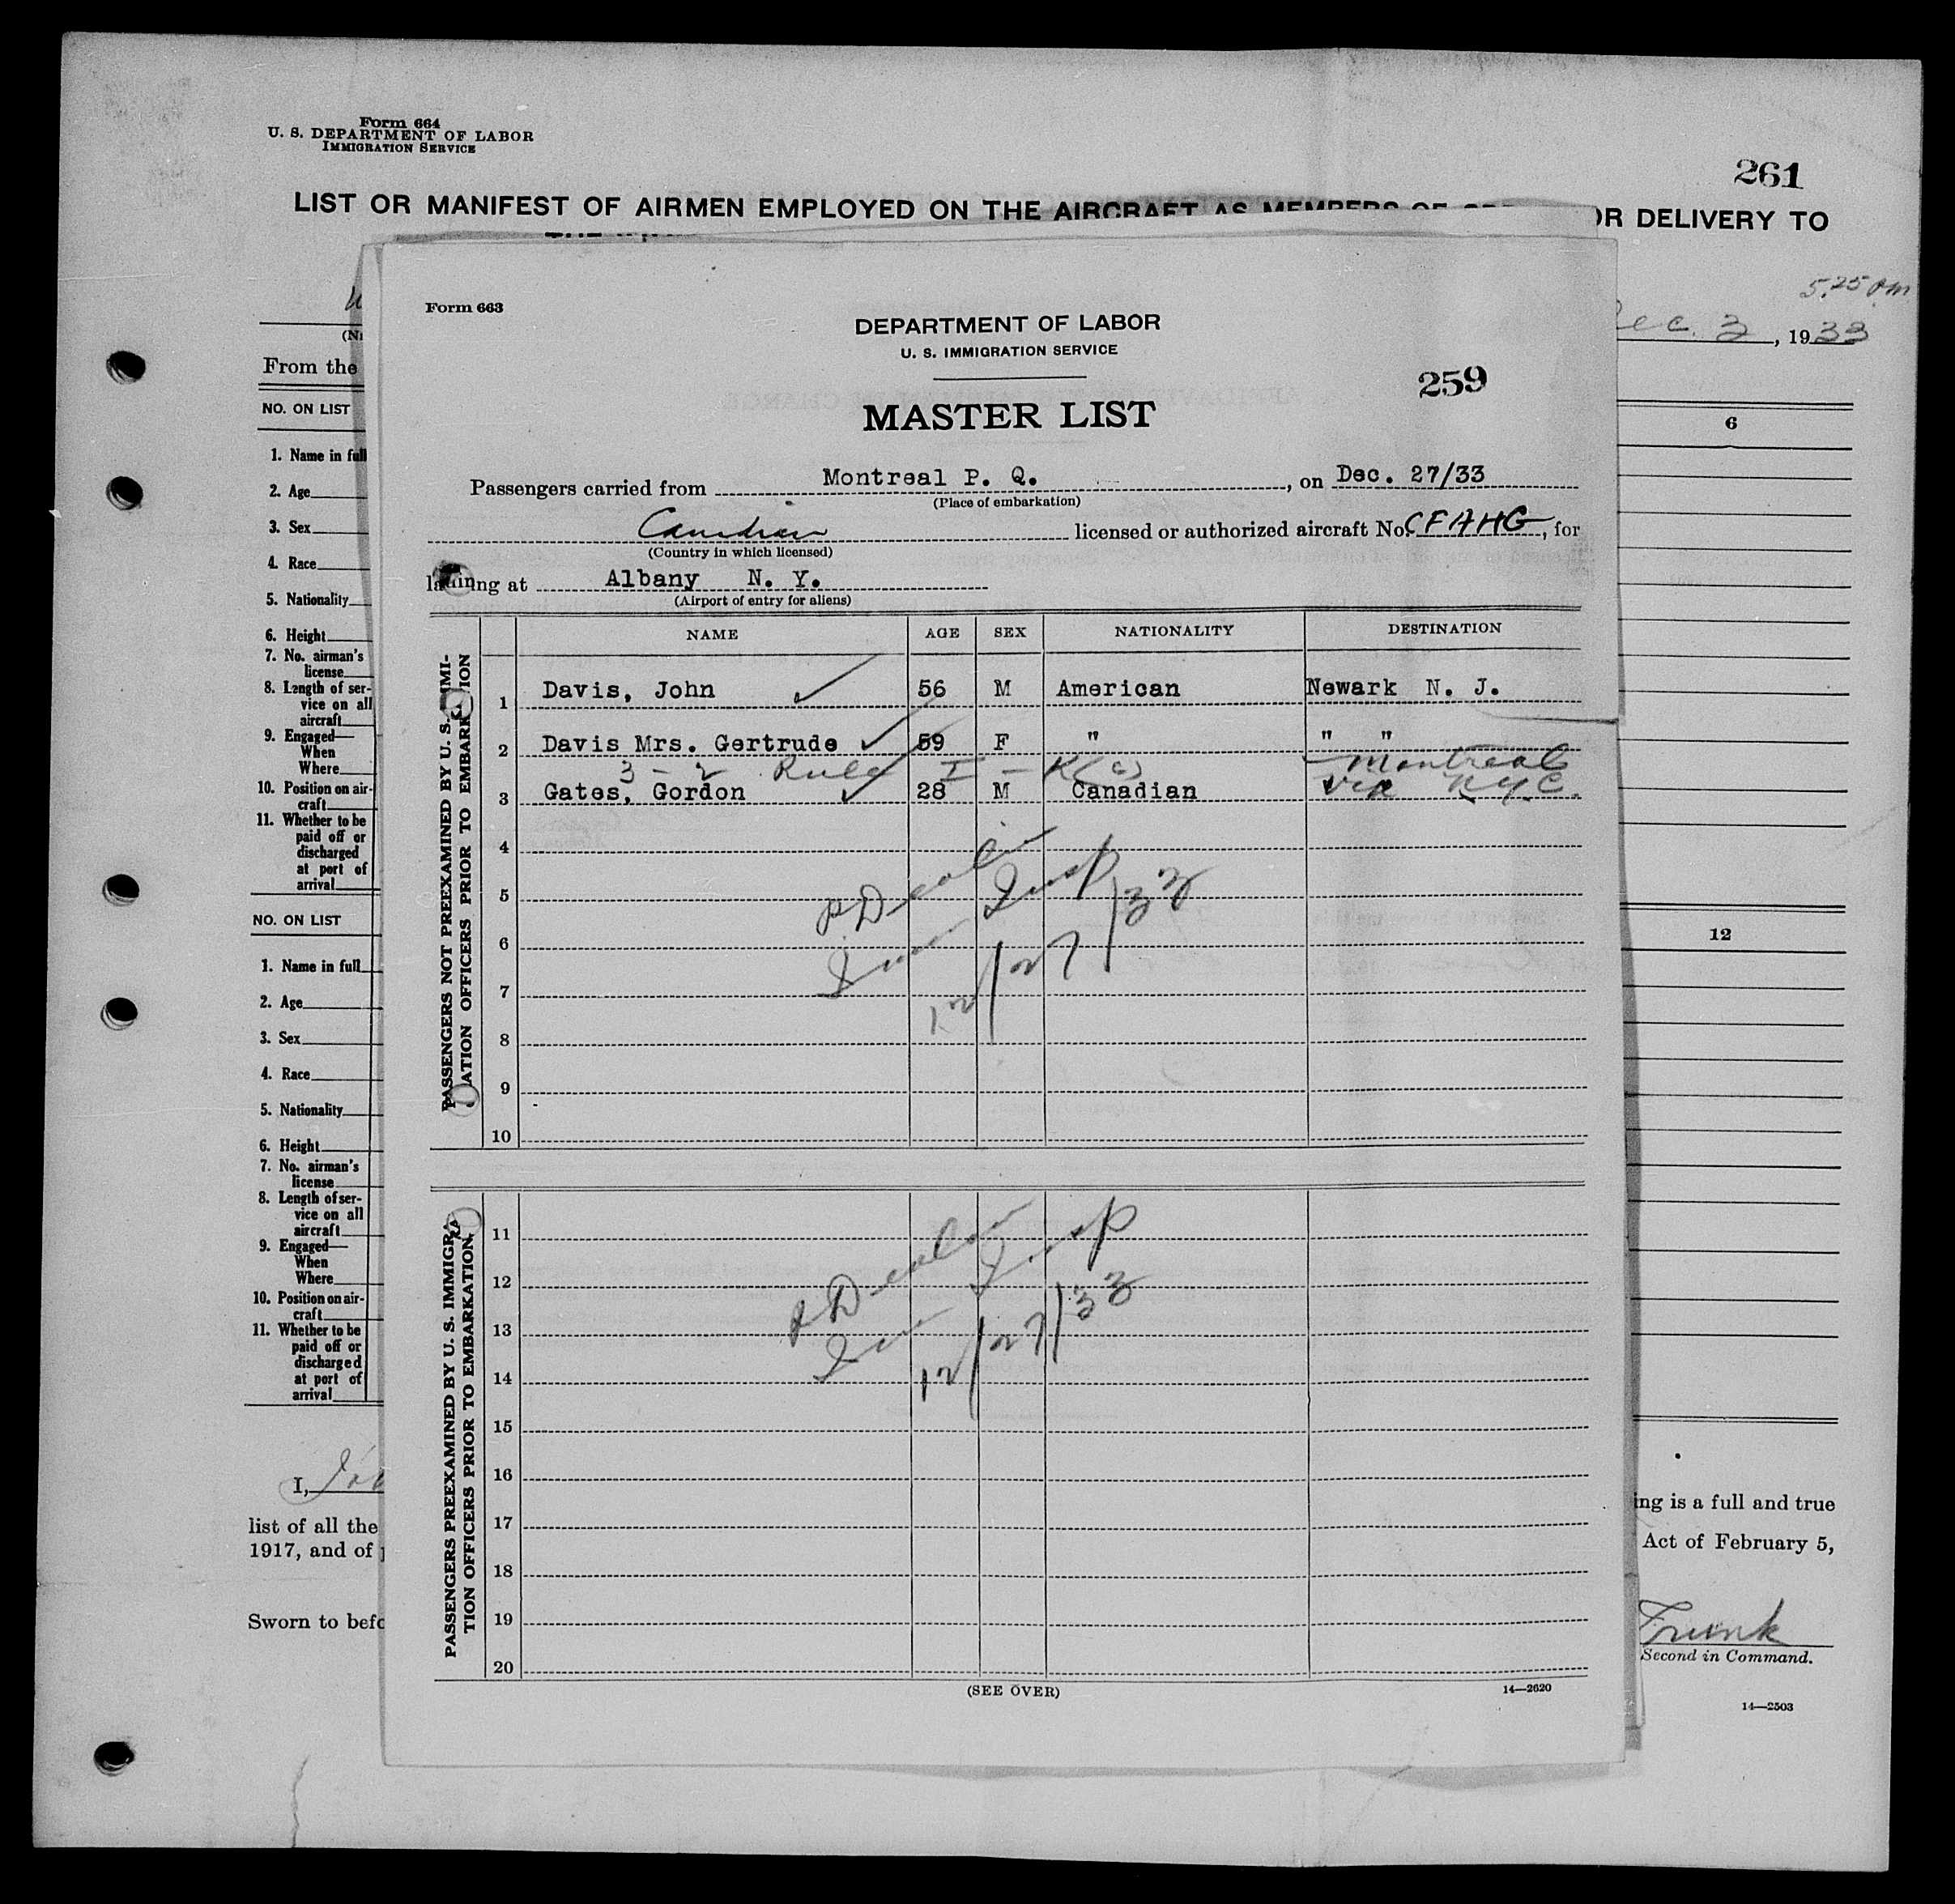 Form 664
U. S. DEPARTMENT OF LABOR
IMMIGRATION SERVICE
261
LIST OR MANIFEST OF AIRMEN EMPLOYED ON THE AIRCRAFT AS MEMBERS OF OR DELIVERY TO
5.25 pm
Dec. 2, 1933
From the
NO. ON LIST
6
1. Name in full
2. Age
3. Sex
4. Race
5. Nationality
6. Height
7. No. airman's
license
8. Length of ser-
vice on all
aircraft
9. Engaged—
When
Where
10. Position on air-
craft
11. Whether to be
paid off or
discharged
at port of
arrival
NO. ON LIST
12
1. Name in full
2. Age
3. Sex
4. Race
5. Nationality
6. Height
7. No. airman's
license
8. Length of ser-
vice on all
aircraft
9. Engaged—
When
Where
10. Position on air-
craft
11. Whether to be
paid off or
discharged
at port of
arrival
I,
ing is a full and true
list of all the
1917, and of
Act of February 5,
Sworn to befo
Frunk
Second in Command.
14—2503
Form 663
DEPARTMENT OF LABOR
U. S. IMMIGRATION SERVICE
259
MASTER LIST
Passengers carried from Montreal P. Q., on Dec. 27/33
(Place of embarkation)
Canadian licensed or authorized aircraft No. CFAHG, for
(Country in which licensed)
landing at Albany N. Y.
(Airport of entry for aliens)
NAME AGE SEX NATIONALITY DESTINATION
PASSENGERS NOT PREEXAMINED BY U. S. IMMI-
GRATION OFFICERS PRIOR TO EMBARKATION
1 Davis, John ✓ 56 M American Newark N. J.
2 Davis Mrs. Gertrude ✓ 59 F " " "
3-2 Rule I - K(c) Montreal
3 Gates, Gordon ✓ 28 M Canadian via N.Y.C.
4
5
6
7
8
9
10
Imm Insp
12/27/33
PASSENGERS PREEXAMINED BY U. S. IMMIGRA-
TION OFFICERS PRIOR TO EMBARKATION
11
12
13
14
15
16
17
18
19
20
Imm Insp
12/27/33
(SEE OVER)
14—2620